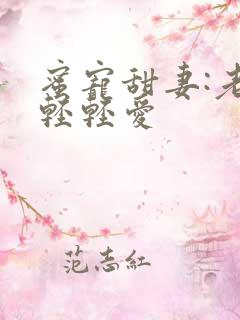 蜜寵甜妻:老
輕輕愛
范志紅